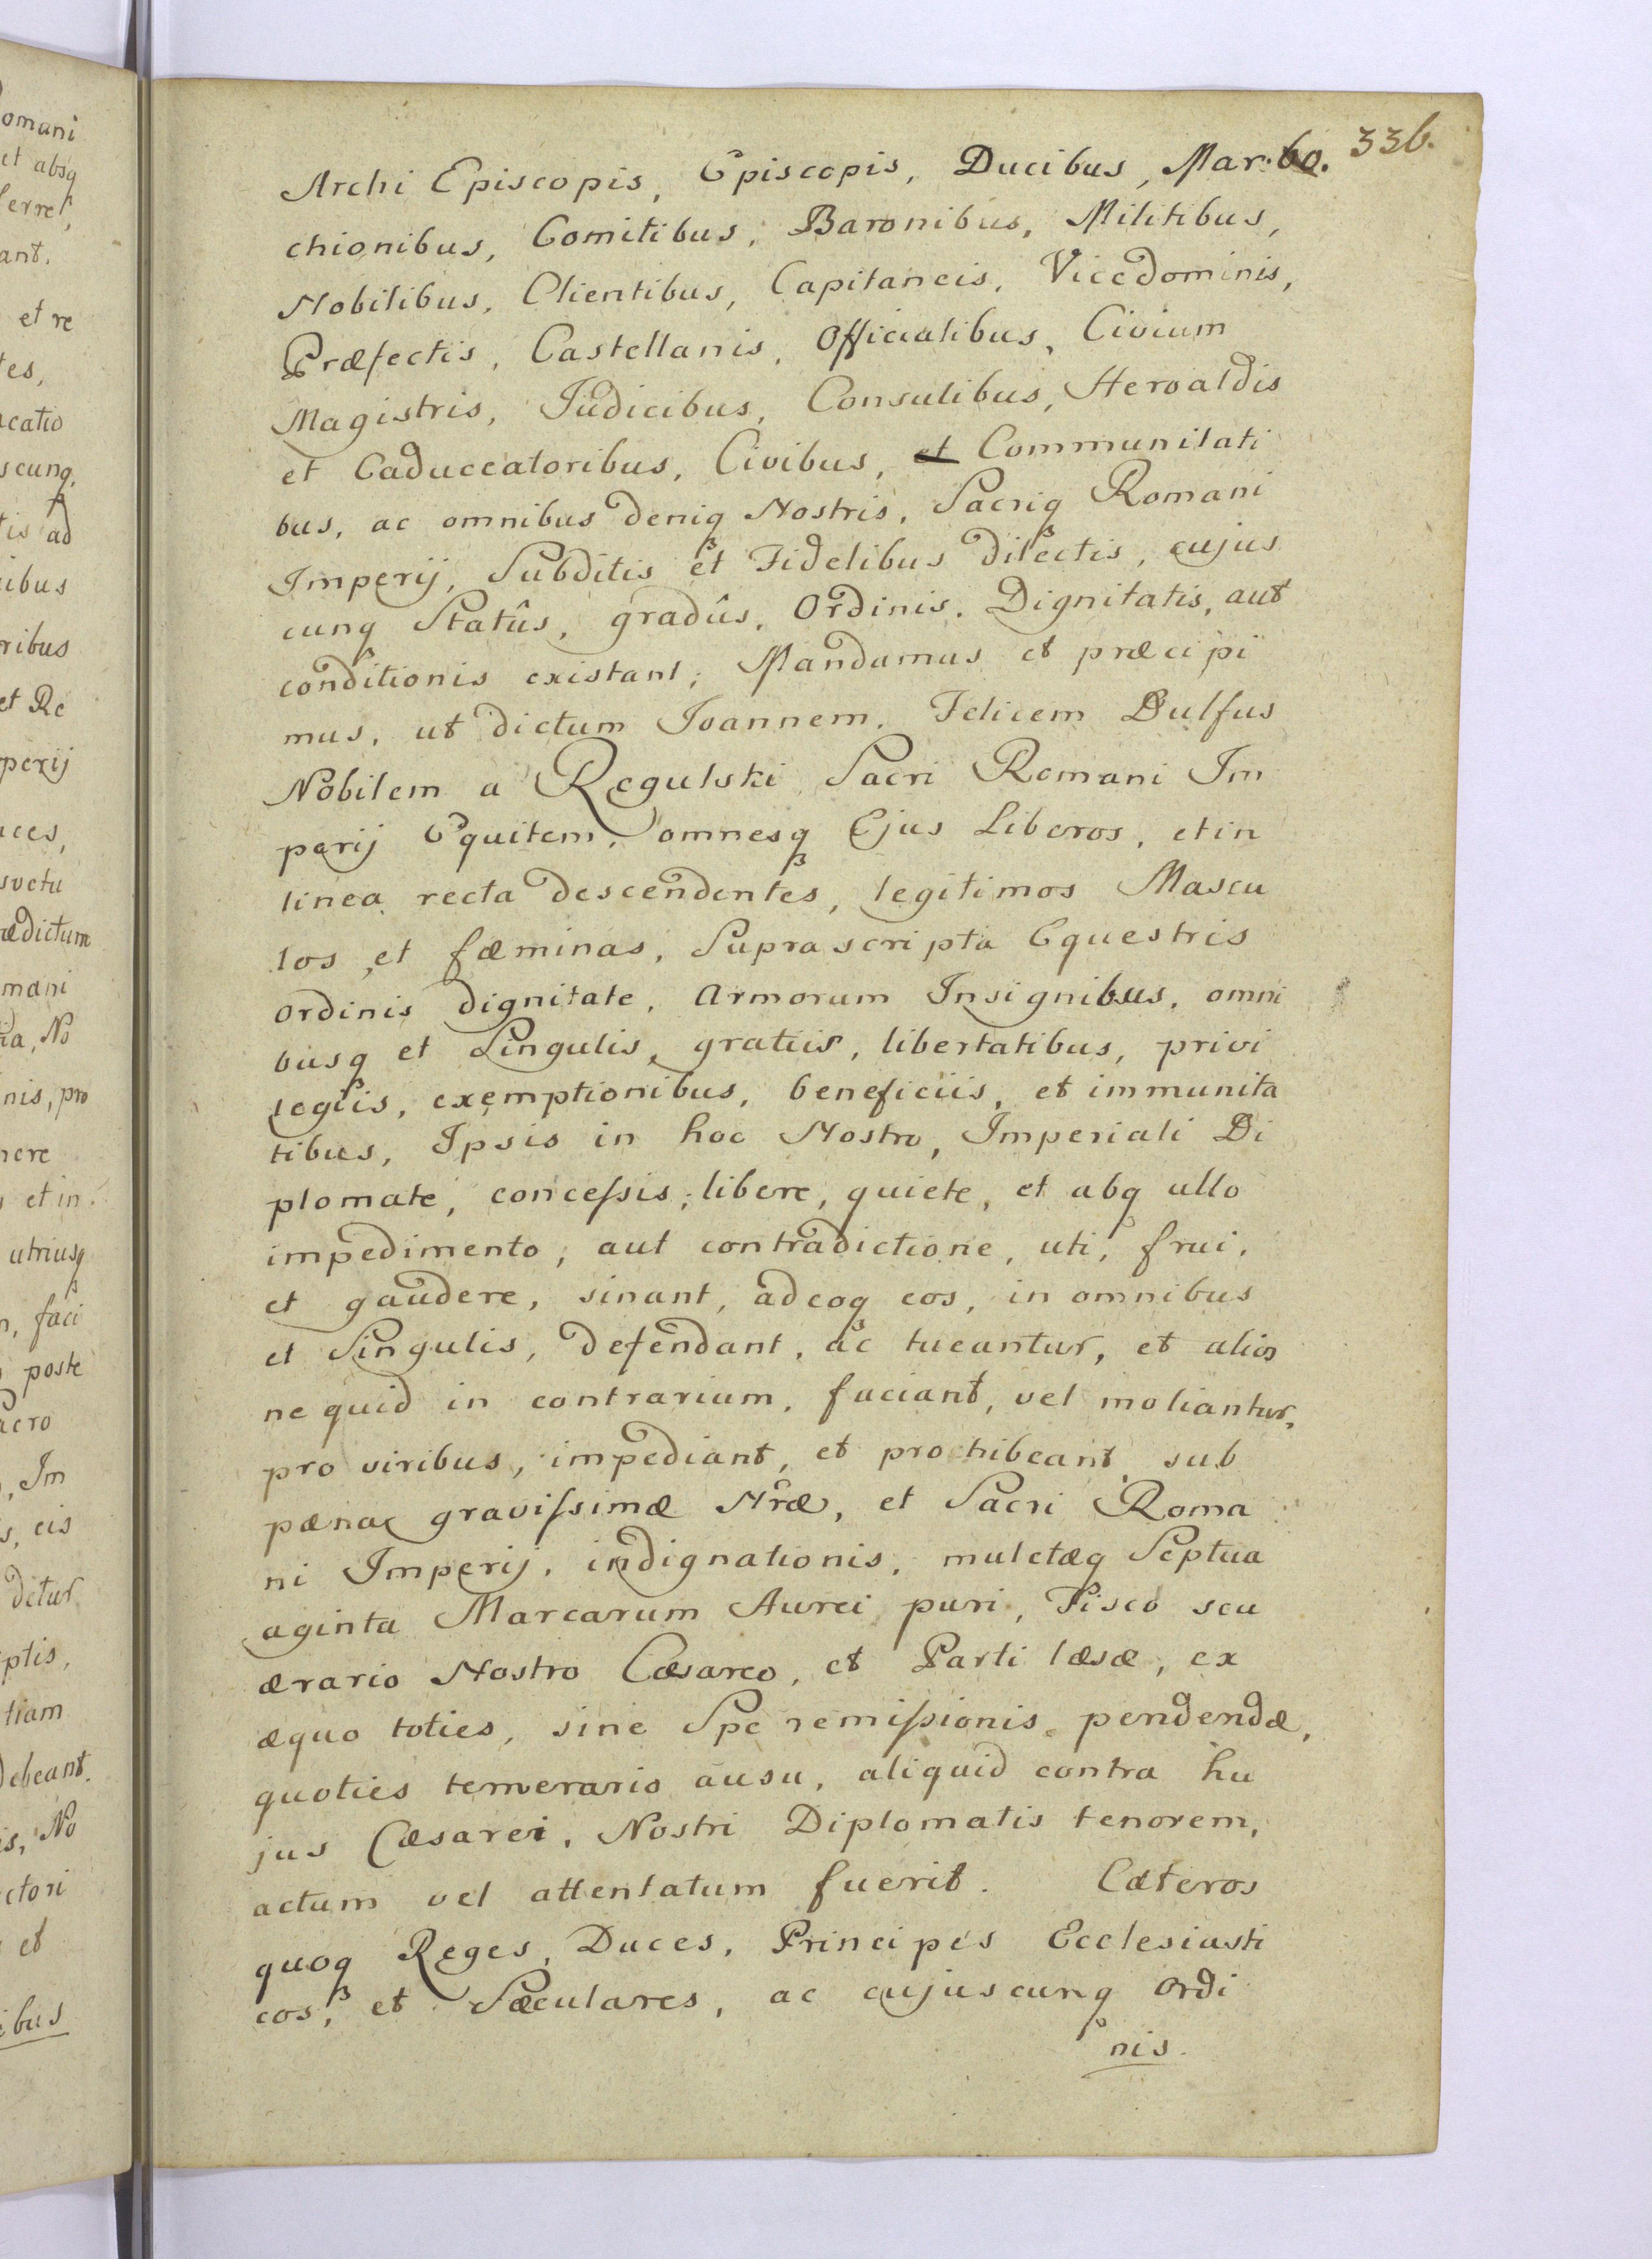 336.
Archi Episcopis, Episcopis, Ducibus, Mar. 60.
chionibus, Comitibus, Baronibus, Militibus,
Nobilibus, Clientibus, Capitaneis, Vicedominis,
Præfectis, Castellanis, Officialibus, Civium
Magistris, Judicibus, Consulibus, Heroaldis
et Caduceatoribus, Civibus, et Communitati
bus, ac omnibus deniq Nostris, Sacriq Romani
Imperij, Subditis et Fidelibus dilectis, cujus
cunq Statûs, gradûs, Ordinis, Dignitatis, aut
conditionis existant; Mandamus et præcipi
mus, ut dictum Joannem, Felicem Dulfus
Nobilem a Regulski Sacri Romani Im
perij Equitem, omnesq Ejus Liberos, et in
linea recta descendentes, legitimos Mascu
los et fæminas, Suprascripta Equestris
ordinis dignitate, Armorum Insignibus, omni
busq et Singulis, gratiis, libertatibus, privi
legiis, exemptionibus, beneficiis, et immunita
tibus, Ipsis in hoc Nostro, Imperiali Di
plomate, concessis; libere, quiete, et absq ullo
impedimento, aut contradictione, uti, frui,
et gaudere, sinant, adeoq eos, in omnibus
et Singulis, defendant, ac tueantur, et alios
ne quid in contrarium, faciant, vel moliantur,
pro viribus, impediant, et prohibeant sub
pæna gravissimæ Nræ, et Sacri Roma
ni Imperij, indignationis, mulctæq Septua
aginta Marcarum Auri puri, Fisco seu
ærario Nostro Cæsareo, et Parti læsæ, ex
æquo toties, sine Spe remissionis pendendæ,
quoties temerario ausu, aliquid contra hu
jus Cæsarei, Nostri Diplomatis tenorem,
actum vel attentatum fuerit. Cæteros
quoq Reges, Duces, Principes Ecclesiasti
cos, et Sæculares, ac cujuscunq Ordi
nis.